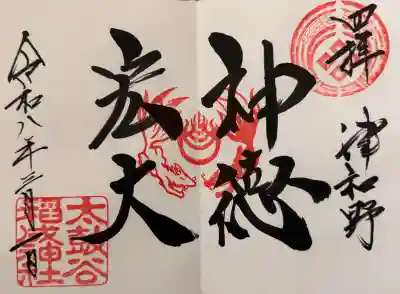 四拝
津和野
神徳
宏大
令和八年三月二日
太皷谷
稲成神社